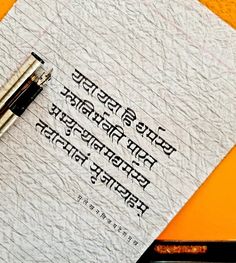 यदा यदा हि धर्मस्य
ग्लानिर्भवति भारत
अभ्युत्थानमधर्मस्य
तदात्मानं सृजाम्यहम्